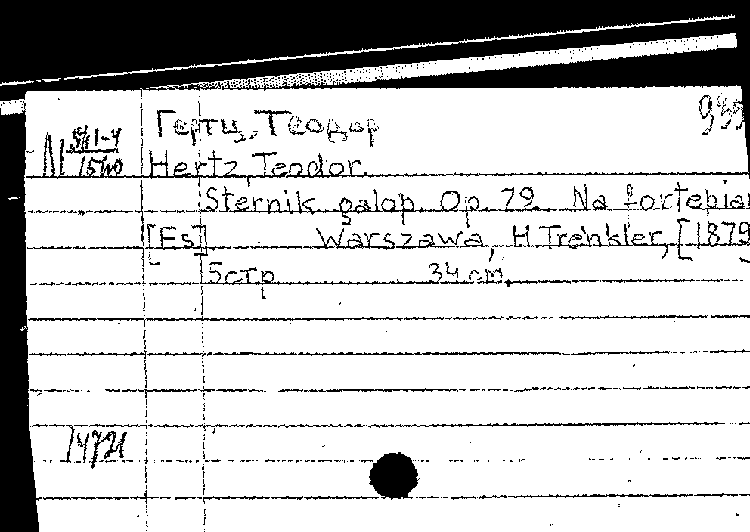 Гертц, Теодор 939
N 1540
Hertz, Teodor.
Sternik galop. Op. 79. Na fortepian
[Es] Warszawa, H Trenkler, [1879
5 стр 34 cm.
14721